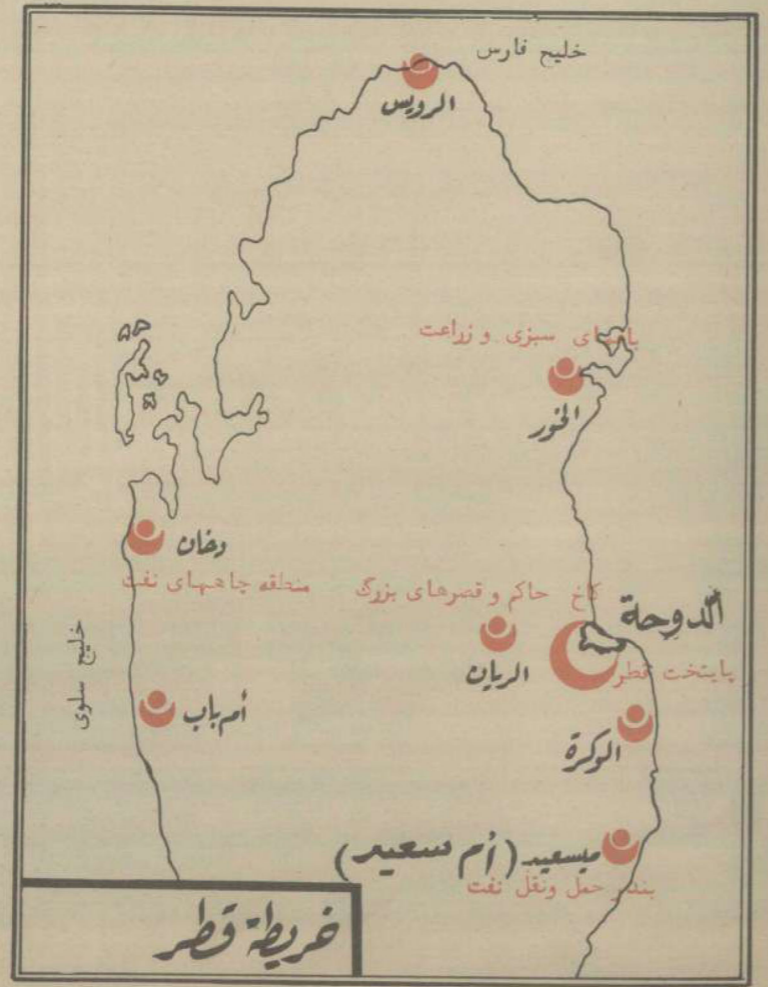 خليج فارس
الرويس
باغهای سبزی و زراعت
الخور
دخان
منطقه چاههای نفت
کاخ حاکم و قصرهای بزرگ
الدوحة
الريان
پایتخت قطر
خليج سلوى
أم باب
الوكرة
ميسعيد (أم سعيد)
بندر حمل ونقل نفت
خريطة قطر